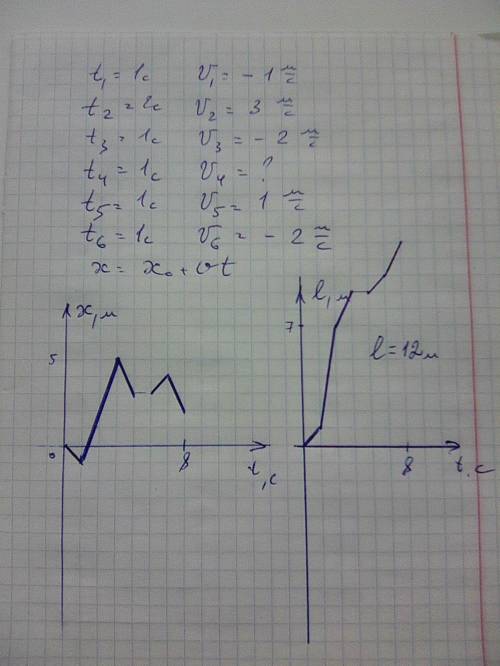 t₁ = 1с V₁ = - 1 м/с
t₂ = 2с V₂ = 3 м/с
t₃ = 1с V₃ = - 2 м/с
t₄ = 1с V₄ = ?
t₅ = 1с V₅ = 1 м/с
t₆ = 1с V₆ = - 2 м/с
x = x₀ + vt
x, м
5
0
8
t, с
l, м
7
l = 12м
8
t, с